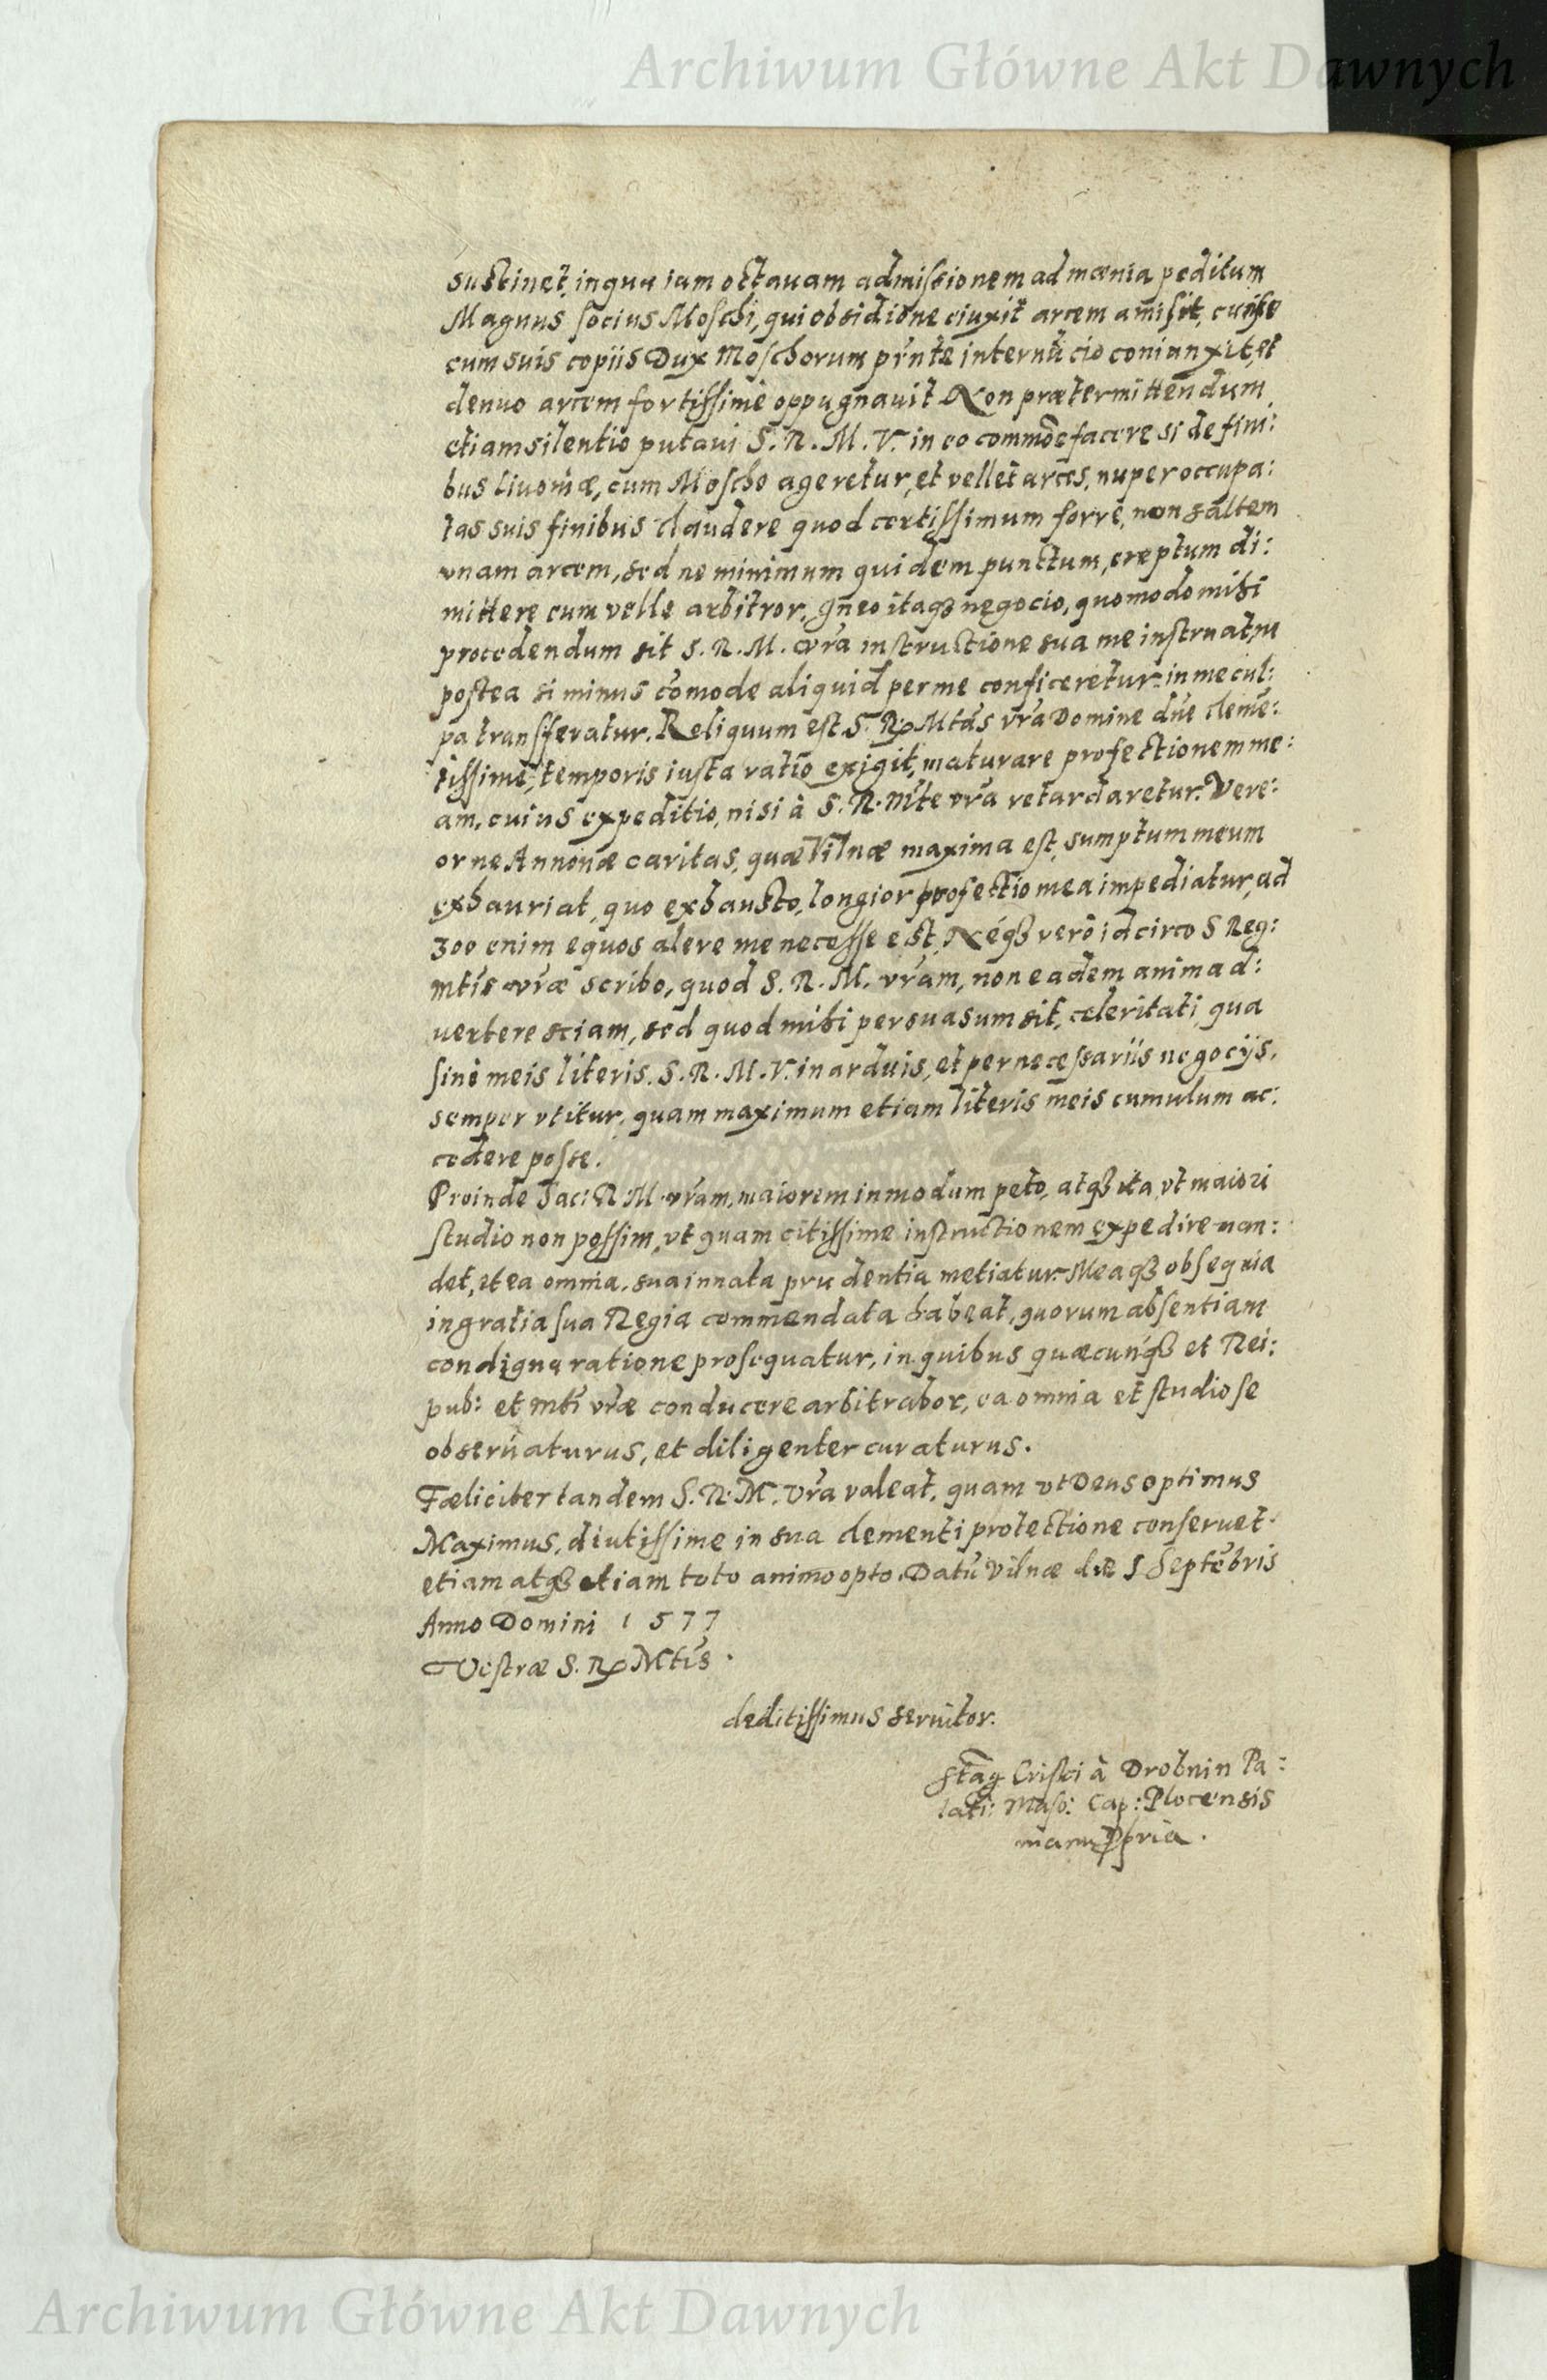 Archiwum Główne Akt Dawnych
sustinet, in qua iam octauam admissionem ad mænia peditum
Magnus socius Moschi, qui obsidione ciuxit arcem amisit, cui se
cum suis copiis Dux Moschorum pr̃nte internũcio coniunxit, et
denuo arcem fortissimè oppugnauit Non prætermittendum
etiam silentio putaui S. R. M. V. in eo commõefacere si de fini:
bus Liuoniæ, cum Moscho ageretur, et vellet arces, nuper occupa:
tas suis finibus claudere quod certissimum forrè, non saltem
vnam arcem, sed ne minimum quidem punctum, ereptum di:
mittere eum velle arbitror. In eo itaqꝫ negocio, quomodo mihi
procedendum sit S. R. M. vr̃a instructione sua me instruat, ne
postea si minus cõmode aliquid per me conficeretur in me cul:
pa transferatur. Reliquum est S. R. Mtãs vr̃a Domine dñe clemẽ:
tissime, temporis iusta ratio exigit, maturare profectionem me:
am, cuius expeditio, nisi à S. R. Mte vr̃a retardaretur. Vere:
or ne Annonæ caritas, quæ Vilnæ maxima est, sumptum meum
exhauriat, quo exhausto, longior profectio mea impediatur, ad
300 enim equos alere me necesse est, Néqꝫ verò idcirco S Reg:
mtis vr̃æ scribo, quod S. R. M. vr̃am, non eadem animad:
uertere sciam, sed quod mihi persuasum sit, celeritati, qua
sinè meis literis. S. R. M. V. in arduis, et pernecessariis negocijs,
semper vtitur, quam maximum etiam literis meis cumulum ac:
cedere posse.
Proinde Sac: R. M. vr̃am, maiorem in modum peto, atqꝫ ita, vt maiori
studio non possim, vt quam citissime instructionem expedire man:
det, et ea omnia, sua innata prudentia metiatur. Meaqꝫ obsequia
in gratia sua Regia commendata habeat, quorum absentiam
condigna ratione prosequatur, in quibus quæcunqꝫ et Rei:
pub: et mti vr̃æ conducere arbitrabor, ea omnia et studiose
obseruaturus, et diligenter curaturus.
Fæliciter tandem S. R. M. vr̃a valeat, quam vt Deus optimus
Maximus, diutissime in sua clementi protectione conseruet
etiam atqꝫ etiam toto animo opto. Datũ Vilnæ die 5 Septẽbris
Anno Domini 1577
Vestræ S. R. Mtis.
deditissimus seruitor.
Stag Crisci à Drobnin Pa:
lati: Maso: Cap: Plocensis
manu ppria.
Archiwum Główne Akt Dawnych